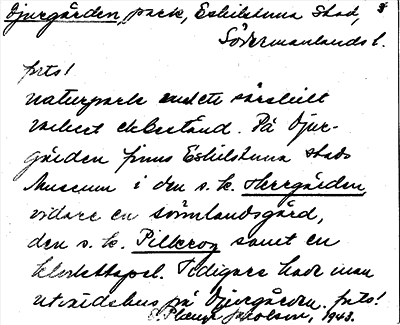 Djurgården, park, Eskilstuna Stad,
Södermanlands l.
forts!
naturpark med ett särskilt
vackert ekbestånd. På Djur-
gården finns Eskilstuna stads
Museum i den s.k. Herrgården
vidare en sörmlandsgård,
den s.k. Pilkrog samt en
klockstapel. Tidigare hade man
utvärdshus på Djurgården. forts!
Jakobson, 1943.